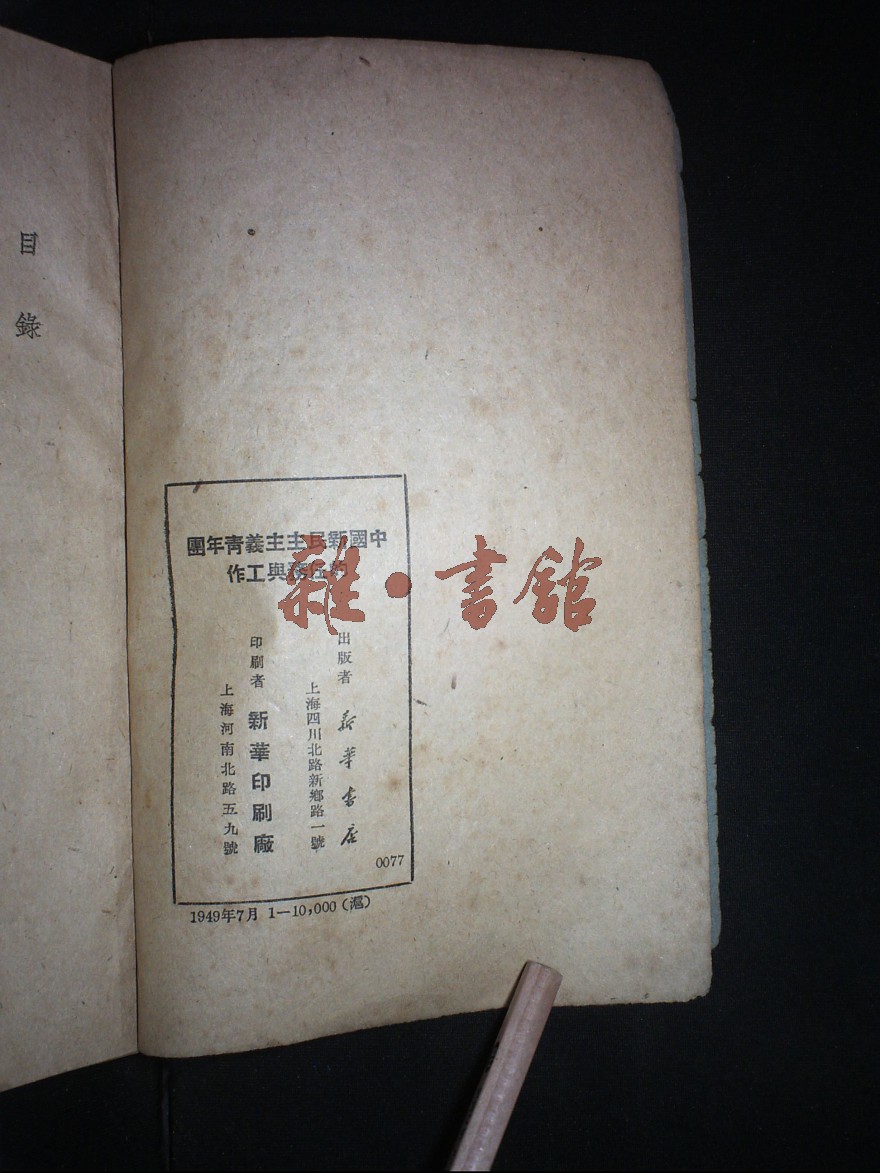 中國新民主主義青年團
的任務與工作
出版者
新華書店
上海四川北路新鄉路一號
印刷者
新華印刷廠
上海河南北路五九號
0077
1949年7月 1—10,000（滬）
目錄
雜·書館